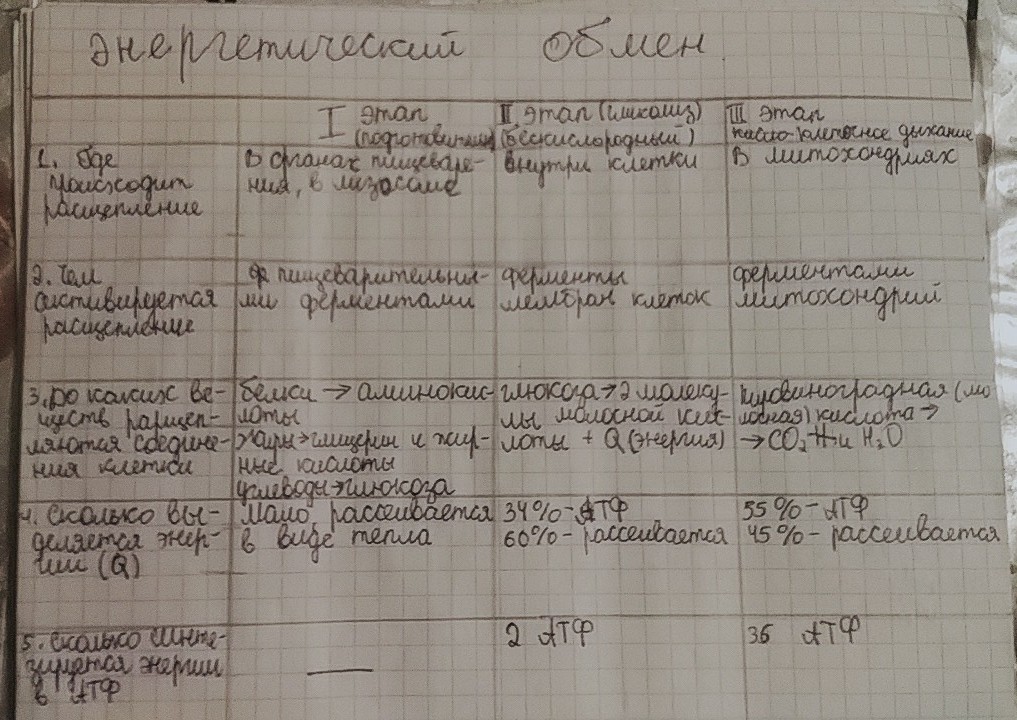 энергетический обмен.
I этап
(подготовительный)
II этап (гликолиз)
(бескислородный)
III этап
клеточное дыхание
1. Где
происходит
расщепление
В органах пищеваре-
ния, в лизосоме
внутри клетки
В митохондриях
2. Чем
активируется
расщепление
пищеварительны-
ми ферментами
ферменты
мембран клеток
ферментами
митохондрий
3. До каких ве-
ществ расщеп-
ляются соедине-
ния клетки
белки → аминокис-
лоты
жиры → глицерин и жир-
ные кислоты
углеводы → глюкоза
глюкоза → 2 молеку-
лы молочной кис-
лоты + Q (энергия)
пировиноградная (мо
лочная) кислота →
→ CO2 и H2O
4. Сколько вы-
деляется энер-
гии (Q)
Мало, рассеивается
в виде тепла
34% - АТФ
60% - рассеивается
55% - АТФ
45% - рассеивается
5. Сколько синте-
зируется энергии
в АТФ
—
2 АТФ
36 АТФ